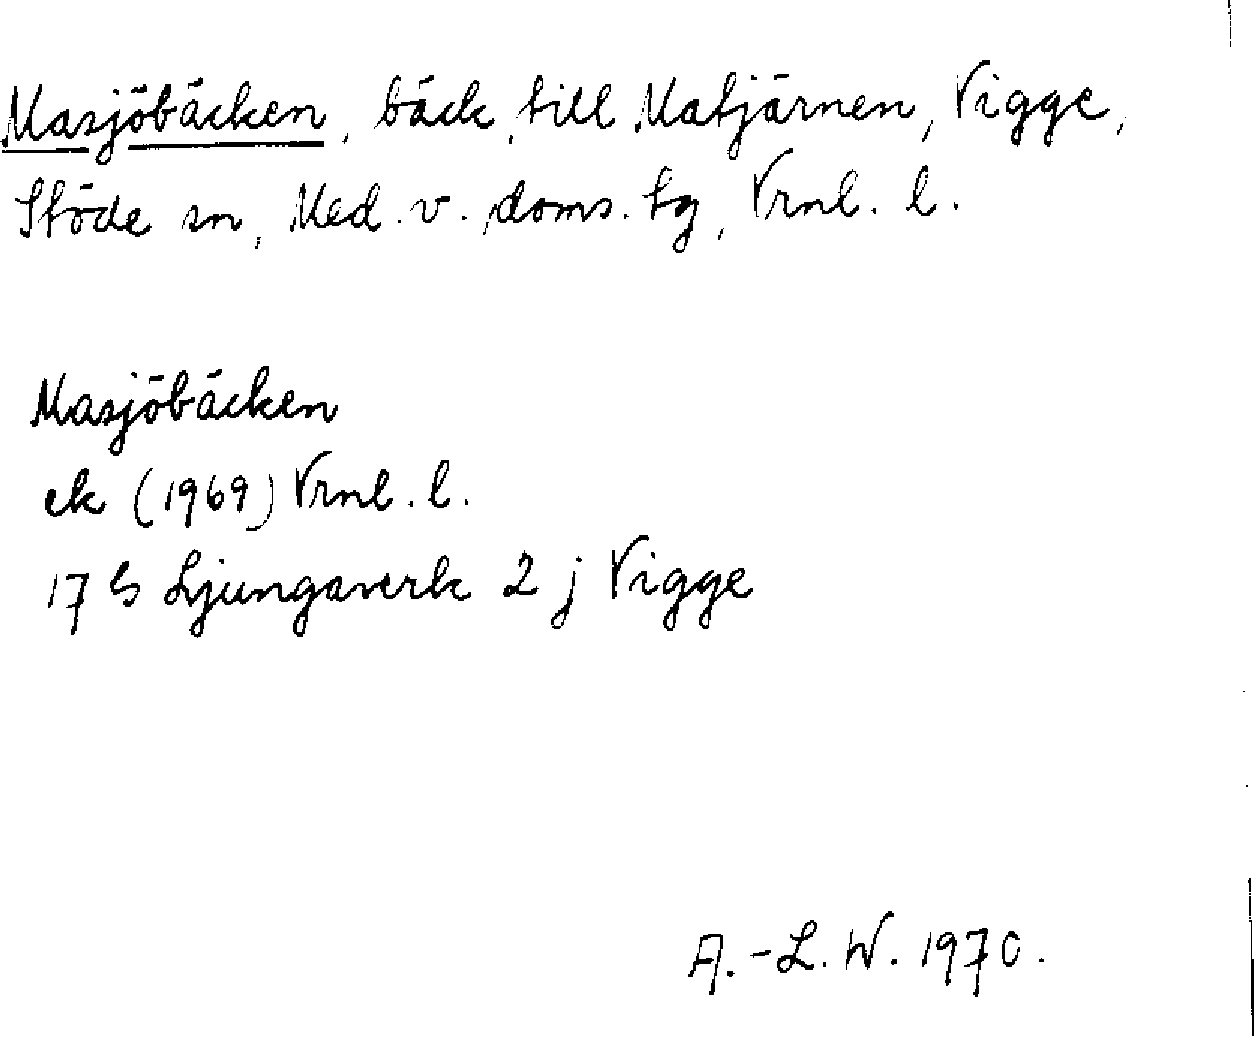 Masjöbäcken, bäck till Matjärnen, Vigge,
Stöde sn, Med. v. doms. tg, Vrnl. l.
Masjöbäcken
ek (1969) Vrnl. l.
17 G Ljungaverk 2 j Vigge
A.-L. W. 1970.